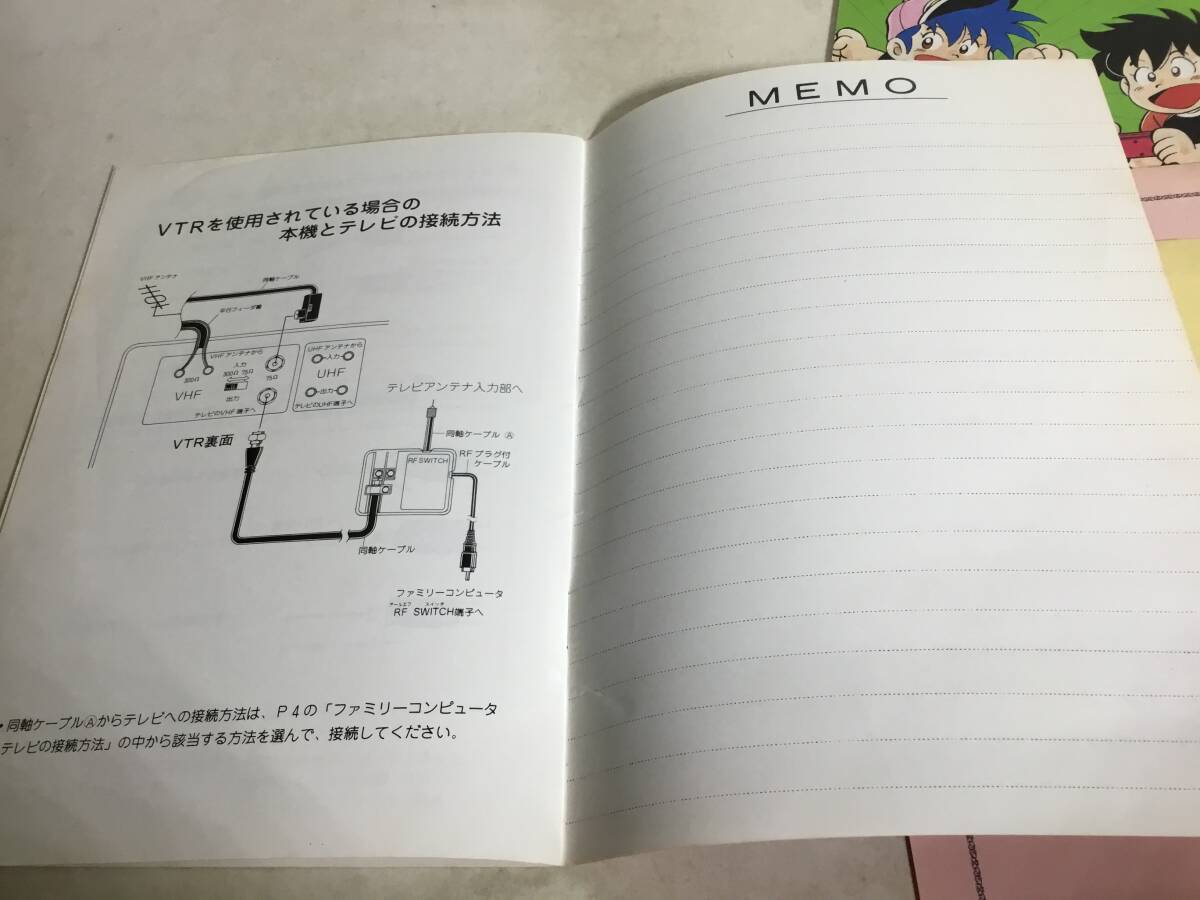 VTRを使用されている場合の
本機とテレビの接続方法
VHFアンテナ
同軸ケーブル
平行フィーダ線
VHFアンテナから
入力
300Ω 75Ω
300Ω
75Ω
VHF
出力
テレビのVHF端子へ
UHFアンテナから
入力
UHF
出力
テレビのUHF端子へ
VTR裏面
テレビアンテナ入力部へ
同軸ケーブル Ⓐ
RF SWITCH
RFプラグ付
ケーブル
同軸ケーブル
ファミリーコンピュータ
アールエフ スイッチ
RF SWITCH端子へ
・同軸ケーブルⒶからテレビへの接続方法は、P4の「ファミリーコンピュータ
テレビの接続方法」の中から該当する方法を選んで、接続してください。
MEMO